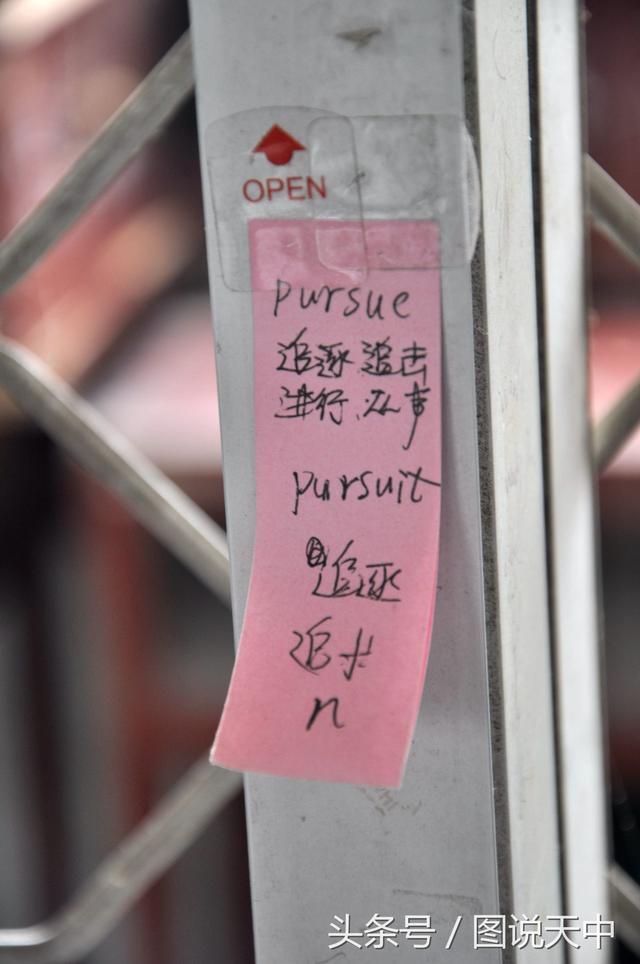 OPEN
pursue
追逐 追击
进行、从事
pursuit
追逐
追求
n
头条号 / 图说天中